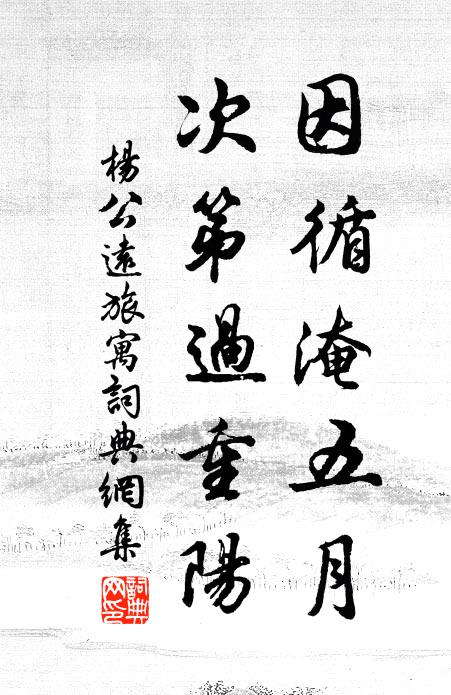 因循淹五月
次第過重陽
楊公遠旅寓詞典網集
詞典
网印